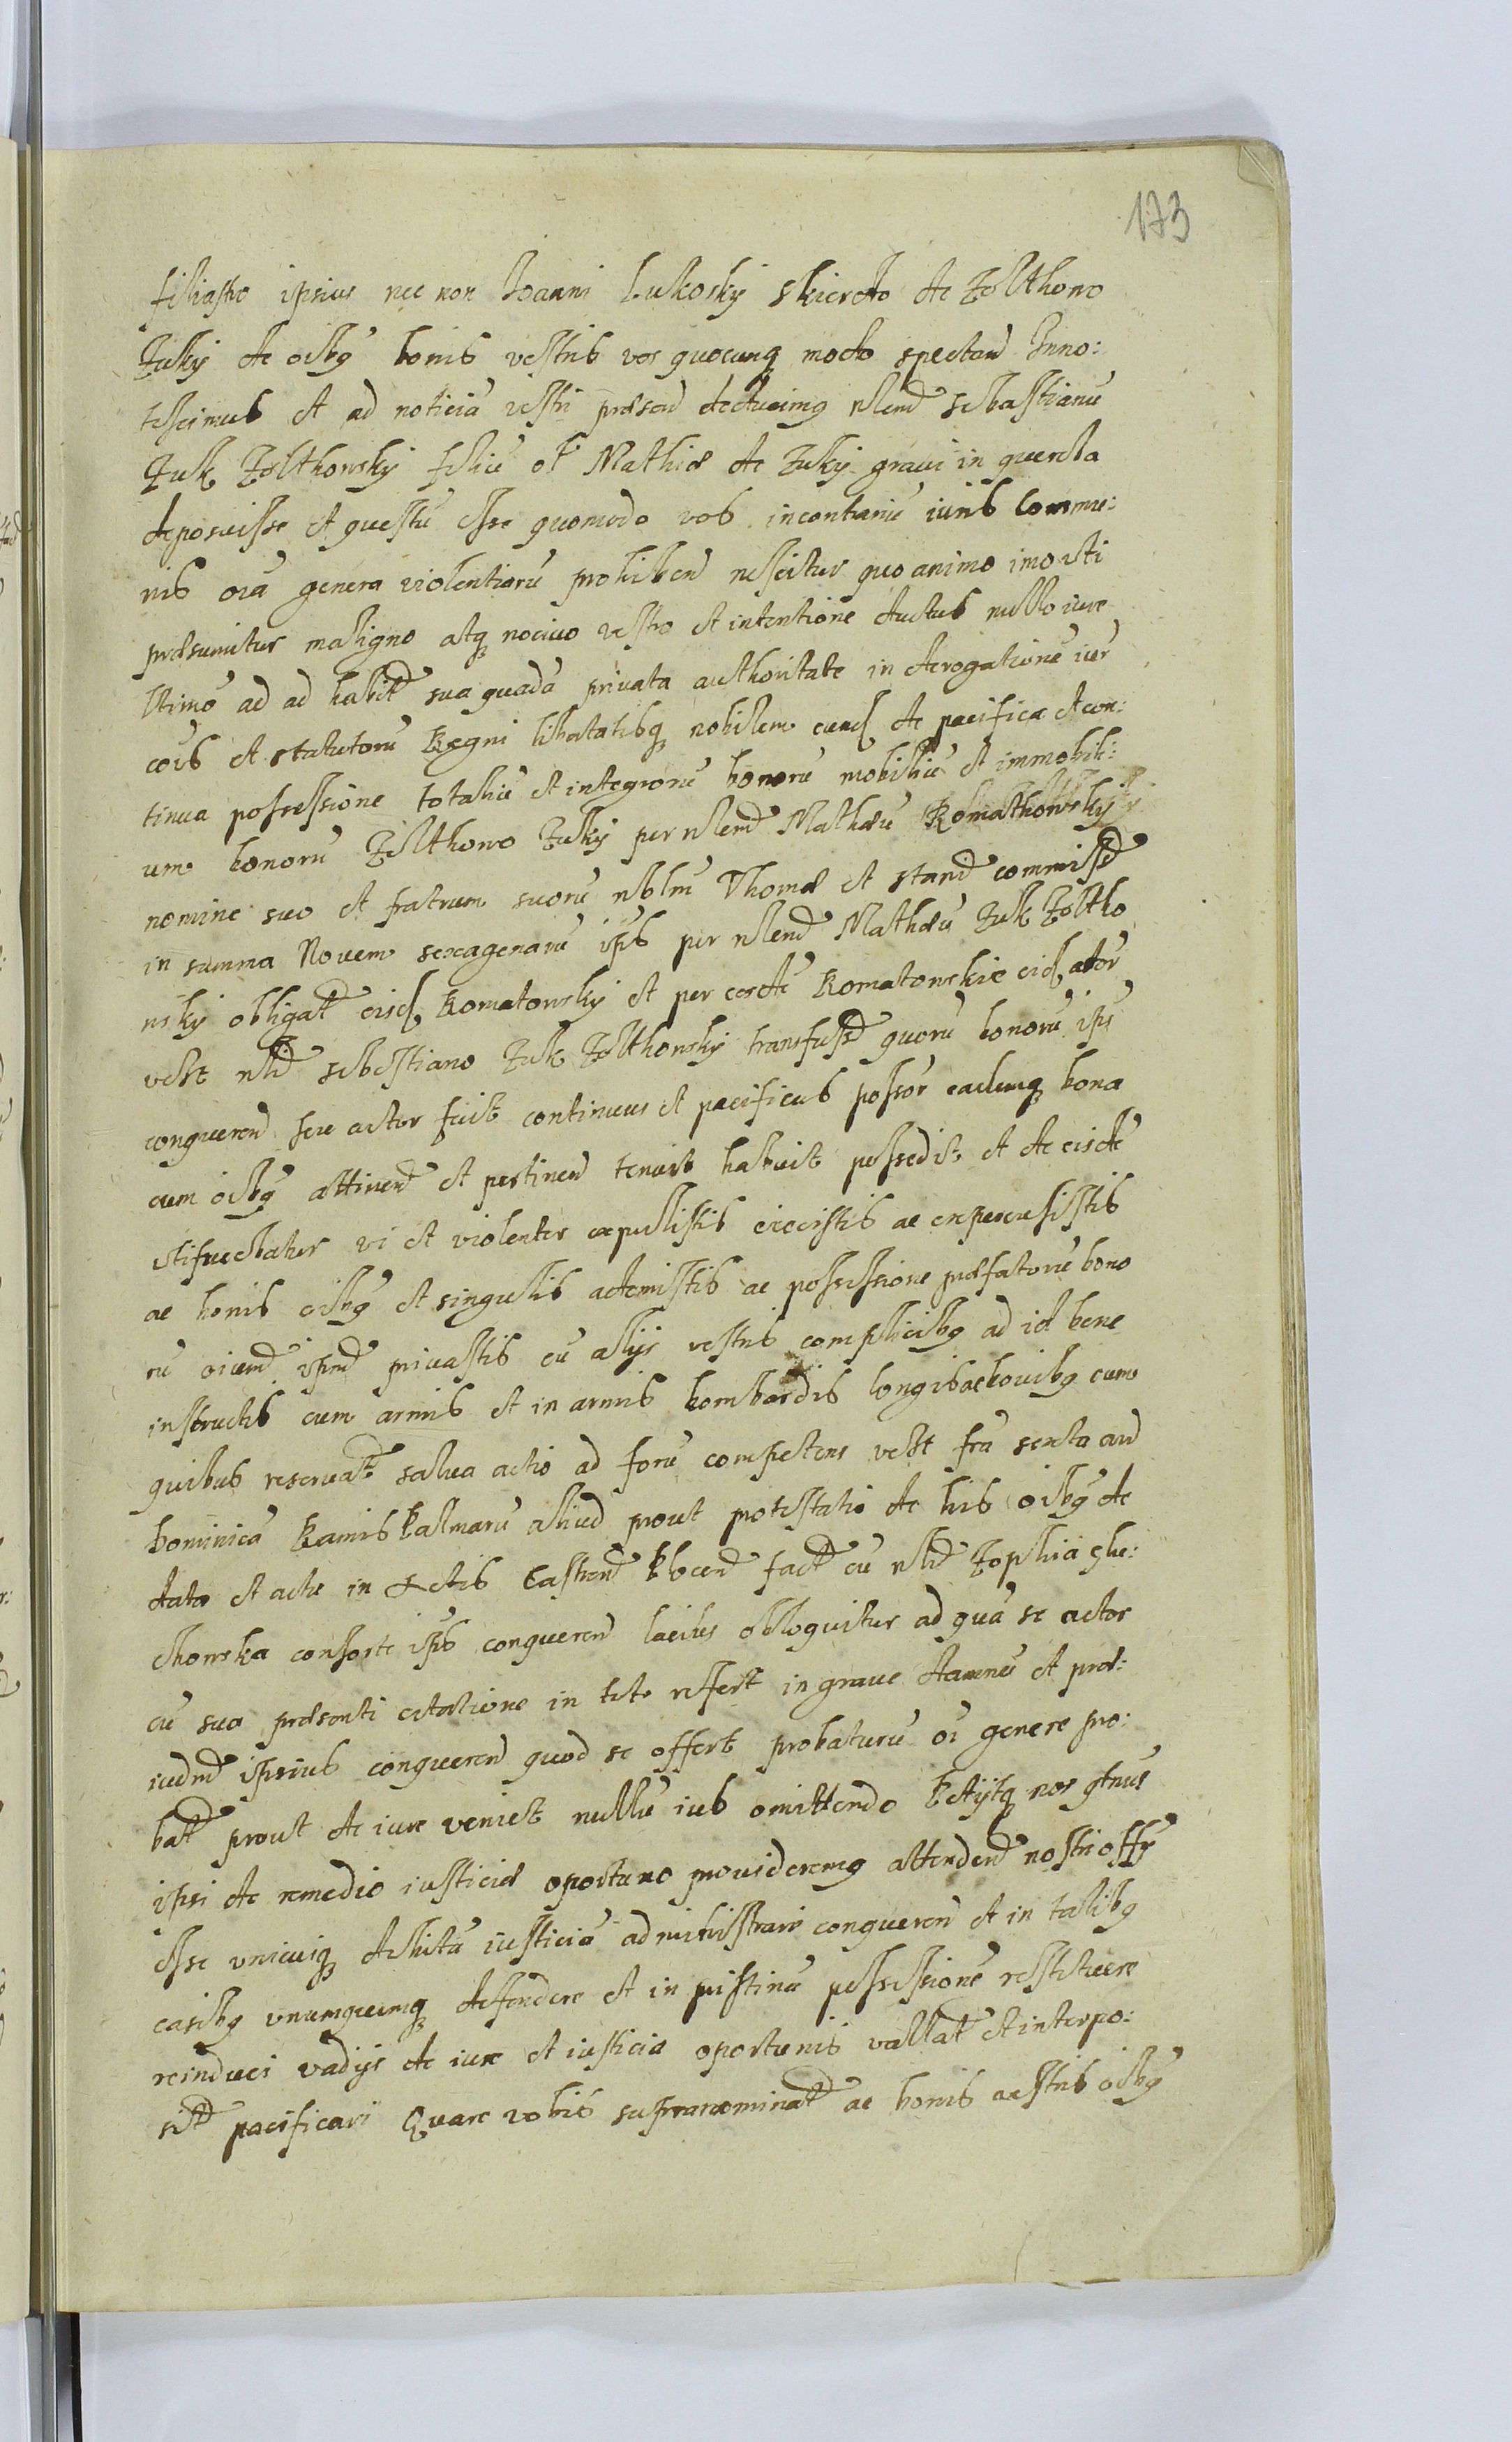 173
filiastro ipsius nec non Joanni Lukosky Skierdo de Zolthowo
Zuky de oibus bonis vestris vos quocunq modo spectan Inno:
tescimus et ad noticiā vestri præsen deducimus nlem Sebastianū
Zuk Zolthowsky filiū ol Mathiæ de Zuky gravi in querela
deposuisse et questū esse quomodo vos incontrariū iuris Commu:
nis oīa genera violentiarū prohiben nescitur quo animo imo uti
præsumitur maligno atq nocivo vestro et intentione ductus nullo iure
ltimō ad ad habit sua quadā privata authoritate in derogationē iur
cōis et statutorū Regni libertatisq nobilem eund de pacifica et con:
tinua possessione totaliū et integrorū bonorū mobiliū et immobili:
um bonorū Zolthowo Zuky per nlem Mathæū Komathowsky
nomine suo et fratrum suorū nblm Thomæ et Stand commiss
in summa Novem sexagenarū ipīs per nlem Mathæū Zuk Zoltho
wsky obligat eisd Komatowsky et per eosde Komatowskie eid ator
velut nli Sebestiano Zuk Zolthowsky transfuss quorū bonorū ips
conqueren seu actor fuit continuus et pacificus possor eademq bona
cum oibus attinen et pertinen tenuit habuit possedit et de eisde
utifruebatur vi et violenter expulistis eiecistis ac expercusistis
ac bonis oibus et singulis ademistis ac possessione præfatorū bono
rū oium ipm privastis cū alijs vestris complicibus ad id bene
instructis cum armis et in armis bombardis longis ac bovibus cum
quibus reservat salva actio ad forū competens velut fra sexta an
Dominicā Ramis Palmarū aliud prout protestatio de his oibus de
data et actu in Actis Castren Plocen fact cū nli Zophia Glu:
chowska consorte ipīs conqueren lacius obloquitur ad quā se actor
cū sua præsenti citatione in toto refert in grave damnū et præ:
iudm ipsius conqueren quod se offert probaturū oī genere pro:
bat prout de iure veniet nullū ius omittendo Petijtq nos gtnus
ipsi de remedio iusticiæ oportuno provideremus attenden nostri offy
esse unicuiq debitā iusticiā administrare conqueren et in talibus
casibus unumquemq defendere et in pristinā possessionē restituere
reinduci vadijs de iure et iusticia oportunis vallat et interpo:
sit pacificari Quare vobis supranominat ac bonis vestris oibus